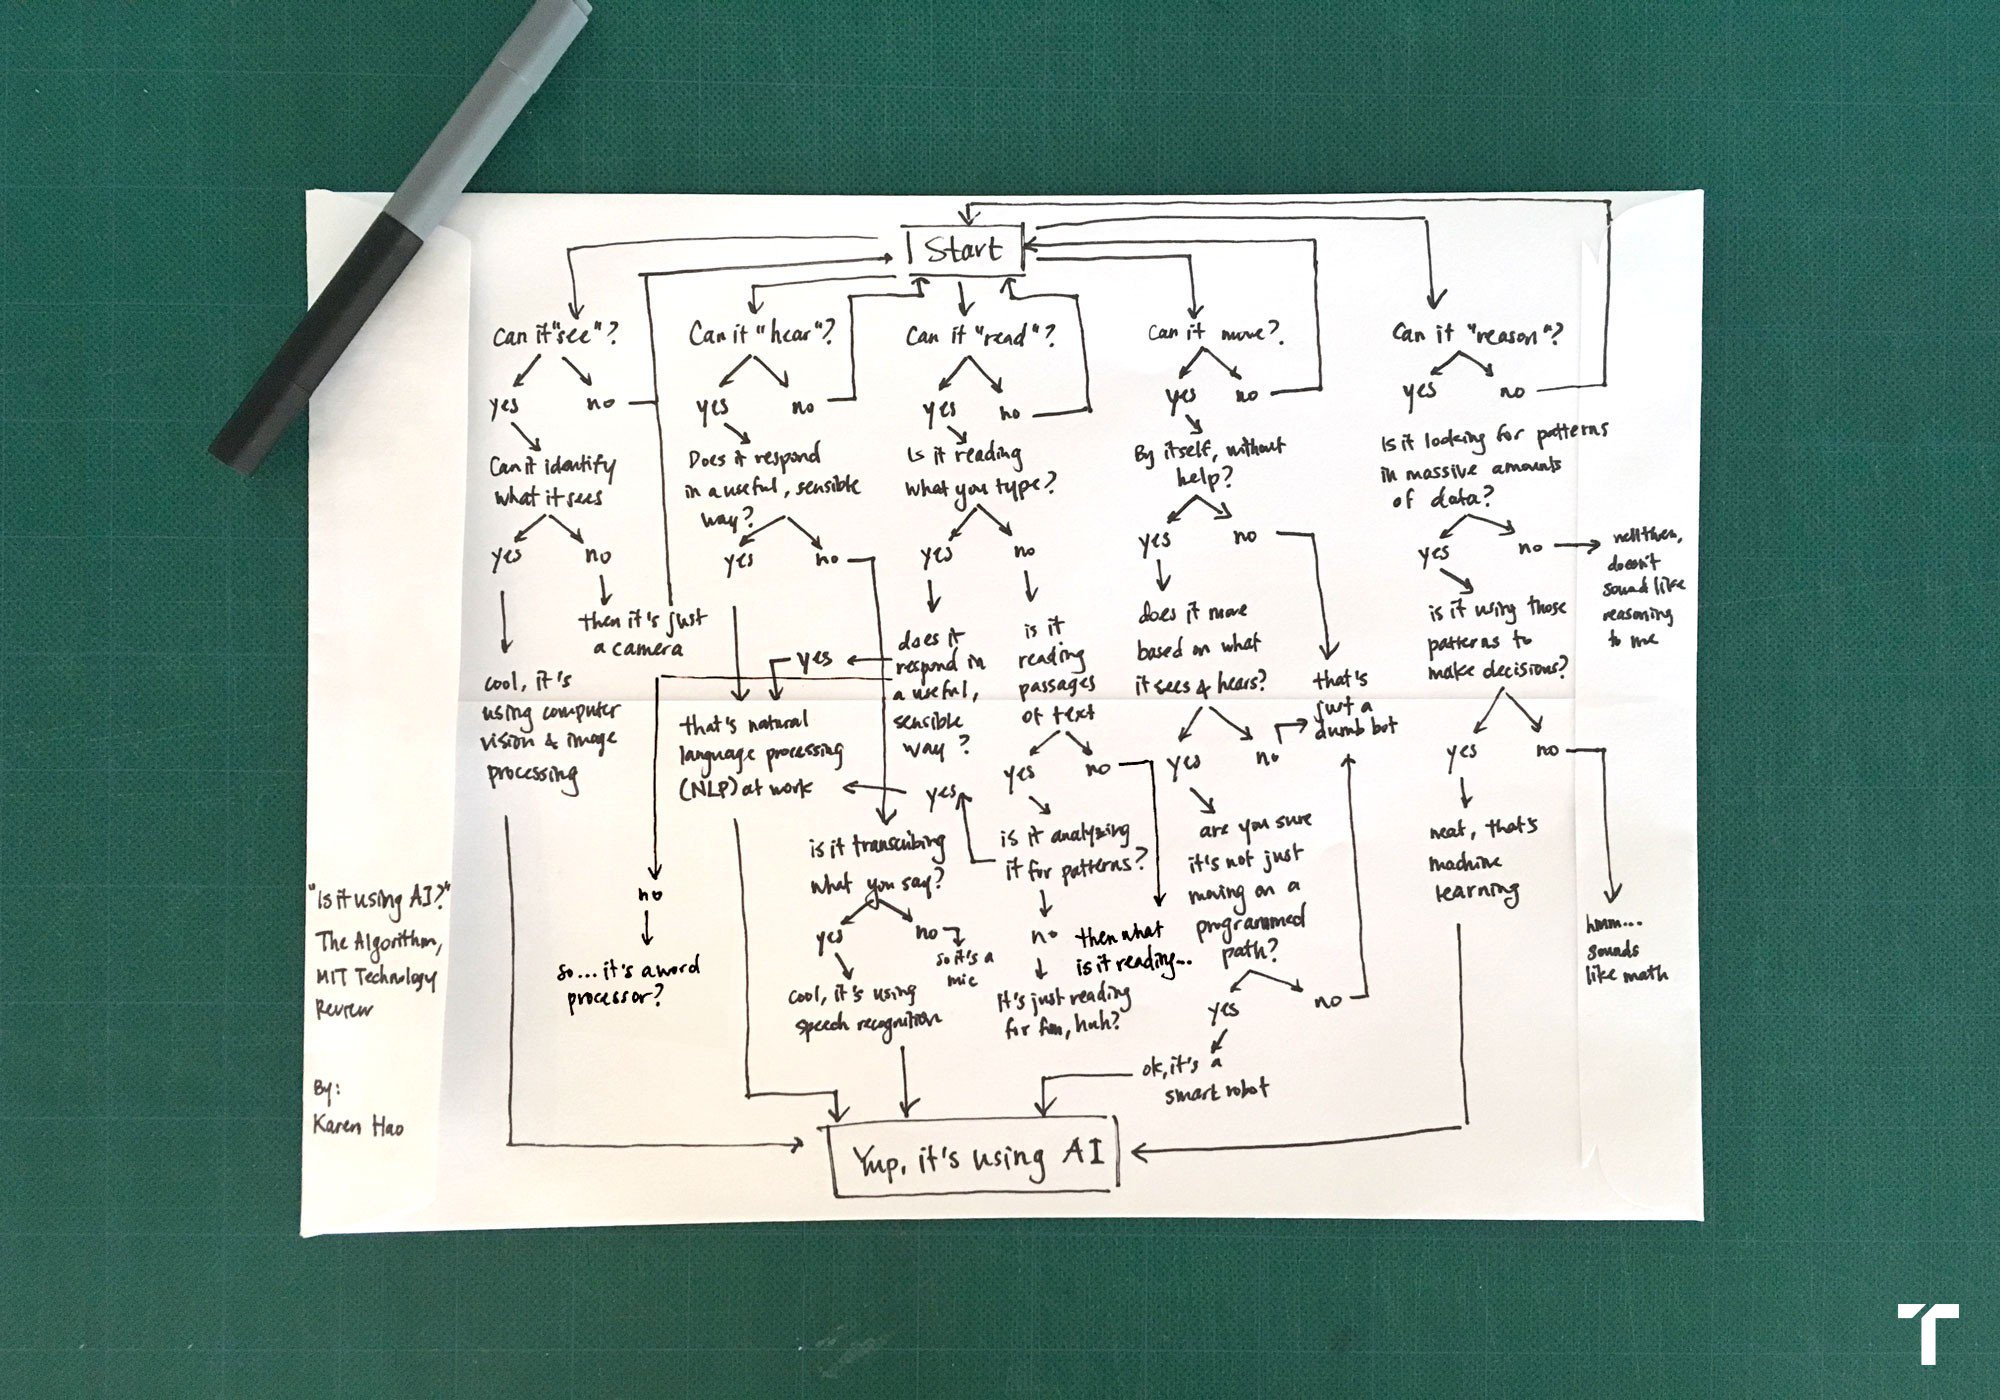 Start
Can it "see"?
yes
no
Can it identify
what it sees
yes
no
then it's just
a camera
cool, it's
using computer
vision & image
processing
Can it "hear"?
yes
no
Does it respond
in a useful, sensible
way?
yes
no
that's natural
language processing
(NLP) at work
is it transcribing
what you say?
yes
no
so it's a
mic
cool, it's using
speech recognition
Can it "read"?
yes
no
Is it reading
what you type?
yes
no
does it
respond in
a useful,
sensible
way?
yes
no
so... it's a word
processor?
is it
reading
passages
of text
yes
no
then what
is it reading...
is it analyzing
it for patterns?
yes
no
It's just reading
for fun, huh?
Can it move?
yes
no
By itself, without
help?
yes
no
that's
just a
dumb bot
does it move
based on what
it sees & hears?
yes
no
are you sure
it's not just
moving on a
programmed
path?
yes
no
ok, it's a
smart robot
Can it "reason"?
yes
no
Is it looking for patterns
in massive amounts
of data?
yes
no
well then,
doesn't
sound like
reasoning
to me
is it using those
patterns to
make decisions?
yes
no
neat, that's
machine
learning
hmm...
sounds
like math
Yup, it's using AI
"Is it using AI?"
The Algorithm,
MIT Technology
Review
By:
Karen Hao